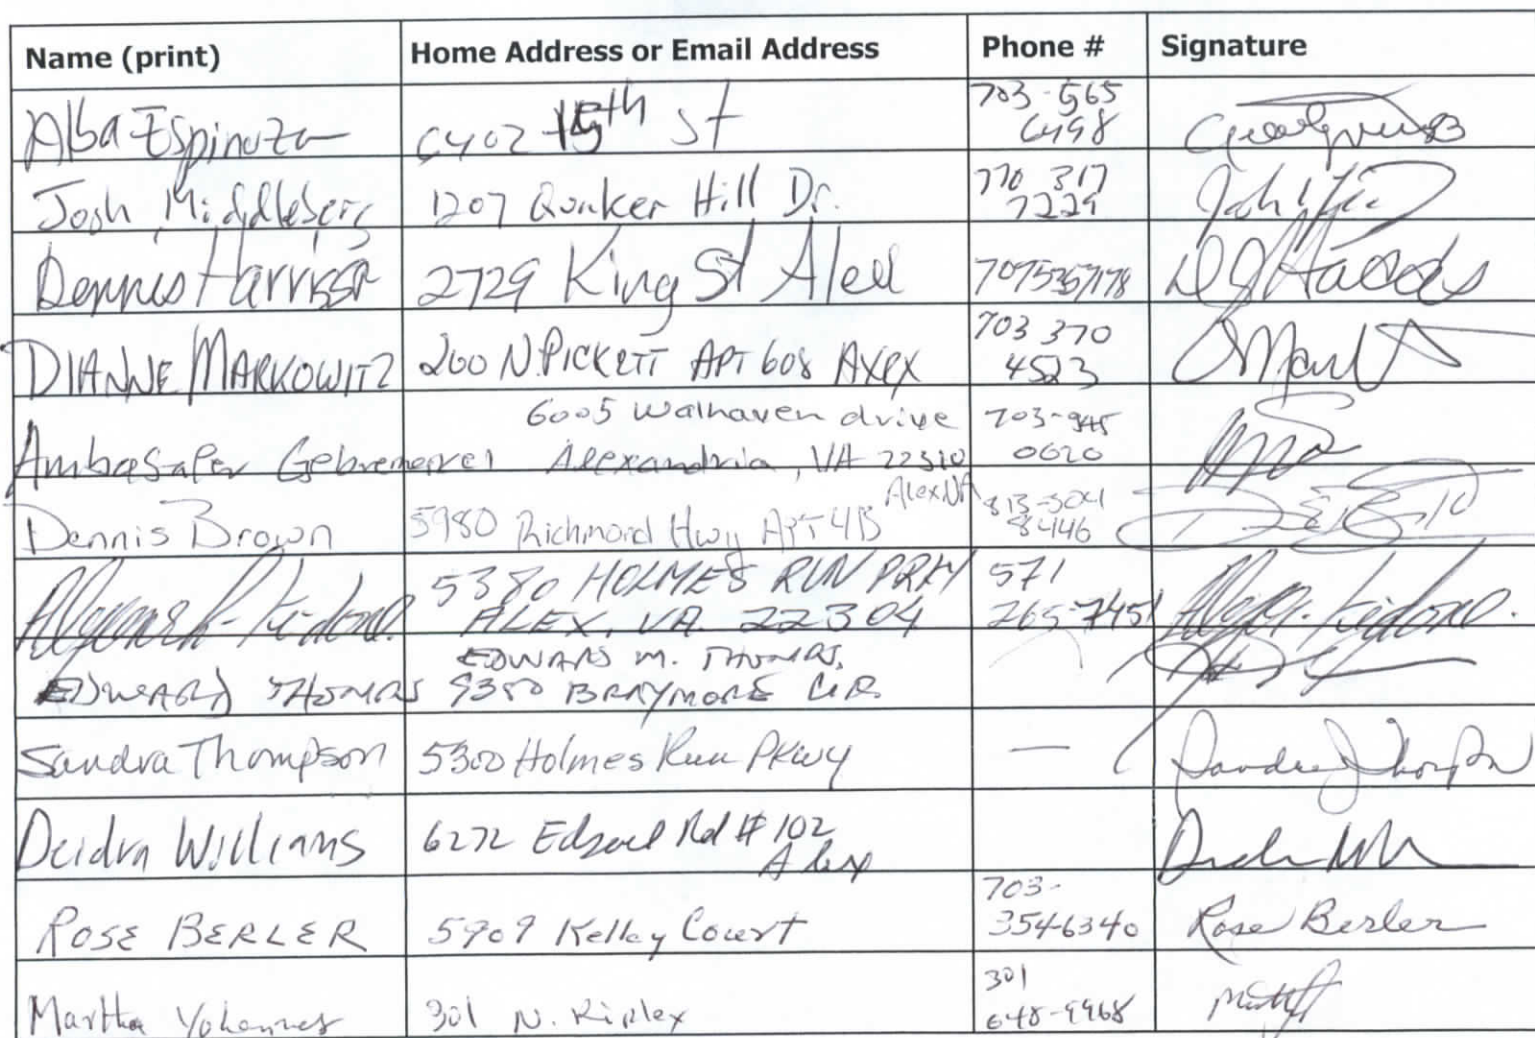 Name (print) Home Address or Email Address Phone # Signature
Alba Espinoza 6402 15th St 703-565
6498
Josh Middleberg 1207 Quaker Hill Dr. 770 317
7229
Dennis Harrison 2729 King St Alex 7075357178
DIANNE MARKOWITZ 200 N. PICKETT APT 608 AXEX 703 370
4523
6005 Walhaven drive 703-945
Ambasaper Gebremeskel Alexandria, VA 22310 0620
Alex VA
Dennis Brown 5980 Richmond Hwy APT 4B 813-304
8446
5380 HOLMES RUN PRKY 571
ALEX, VA. 22304 265-7451
EDWARD M. THOMAS,
EDWARD THOMAS 9380 BRAYMORE CIR.
Sandra Thompson 5300 Holmes Run PKwy — Sandra J Thompson
Deidra Williams 6272 Edsall Rd #102
Alex
703-
ROSE BERLER 5909 Kelley Court 354-6340 Rose Berler
301
Martha Yohannes 301 N. Ripley 648-9968